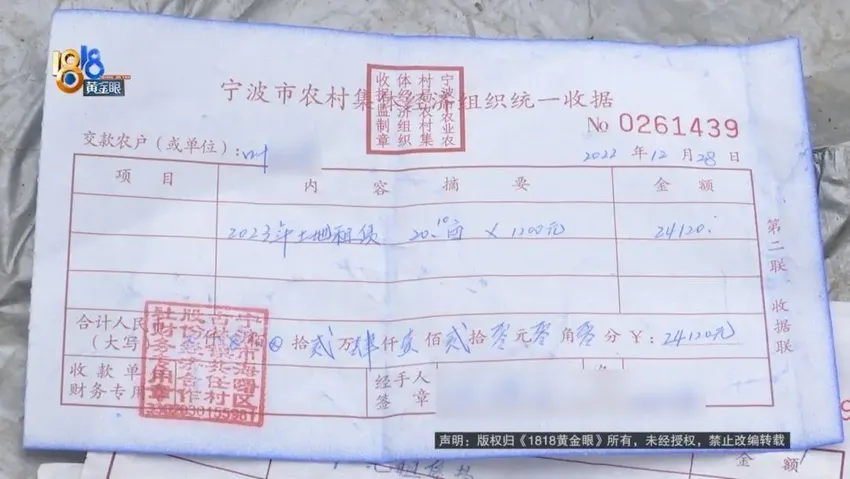 1818
黄金眼
宁波市农村集体经济组织统一收据
宁波市农业农村集体经济组织收据监制章
No 0261439
交款农户（或单位）:叶
2022 年 12 月 28 日
项 目 内 容 摘 要 金 额
2023年土地租线 20.10亩 × 1200元 24120.
第二联 收据联
合计人民币
（大写） 拾贰万肆仟壹佰贰拾零元零角零分 ¥: 24120元
收款单
财务专用章
经手人
签 章
宁波市海曙区
股份经济合作
社财务专用章
声明：版权归《1818黄金眼》所有，未经授权，禁止改编转载
金 额